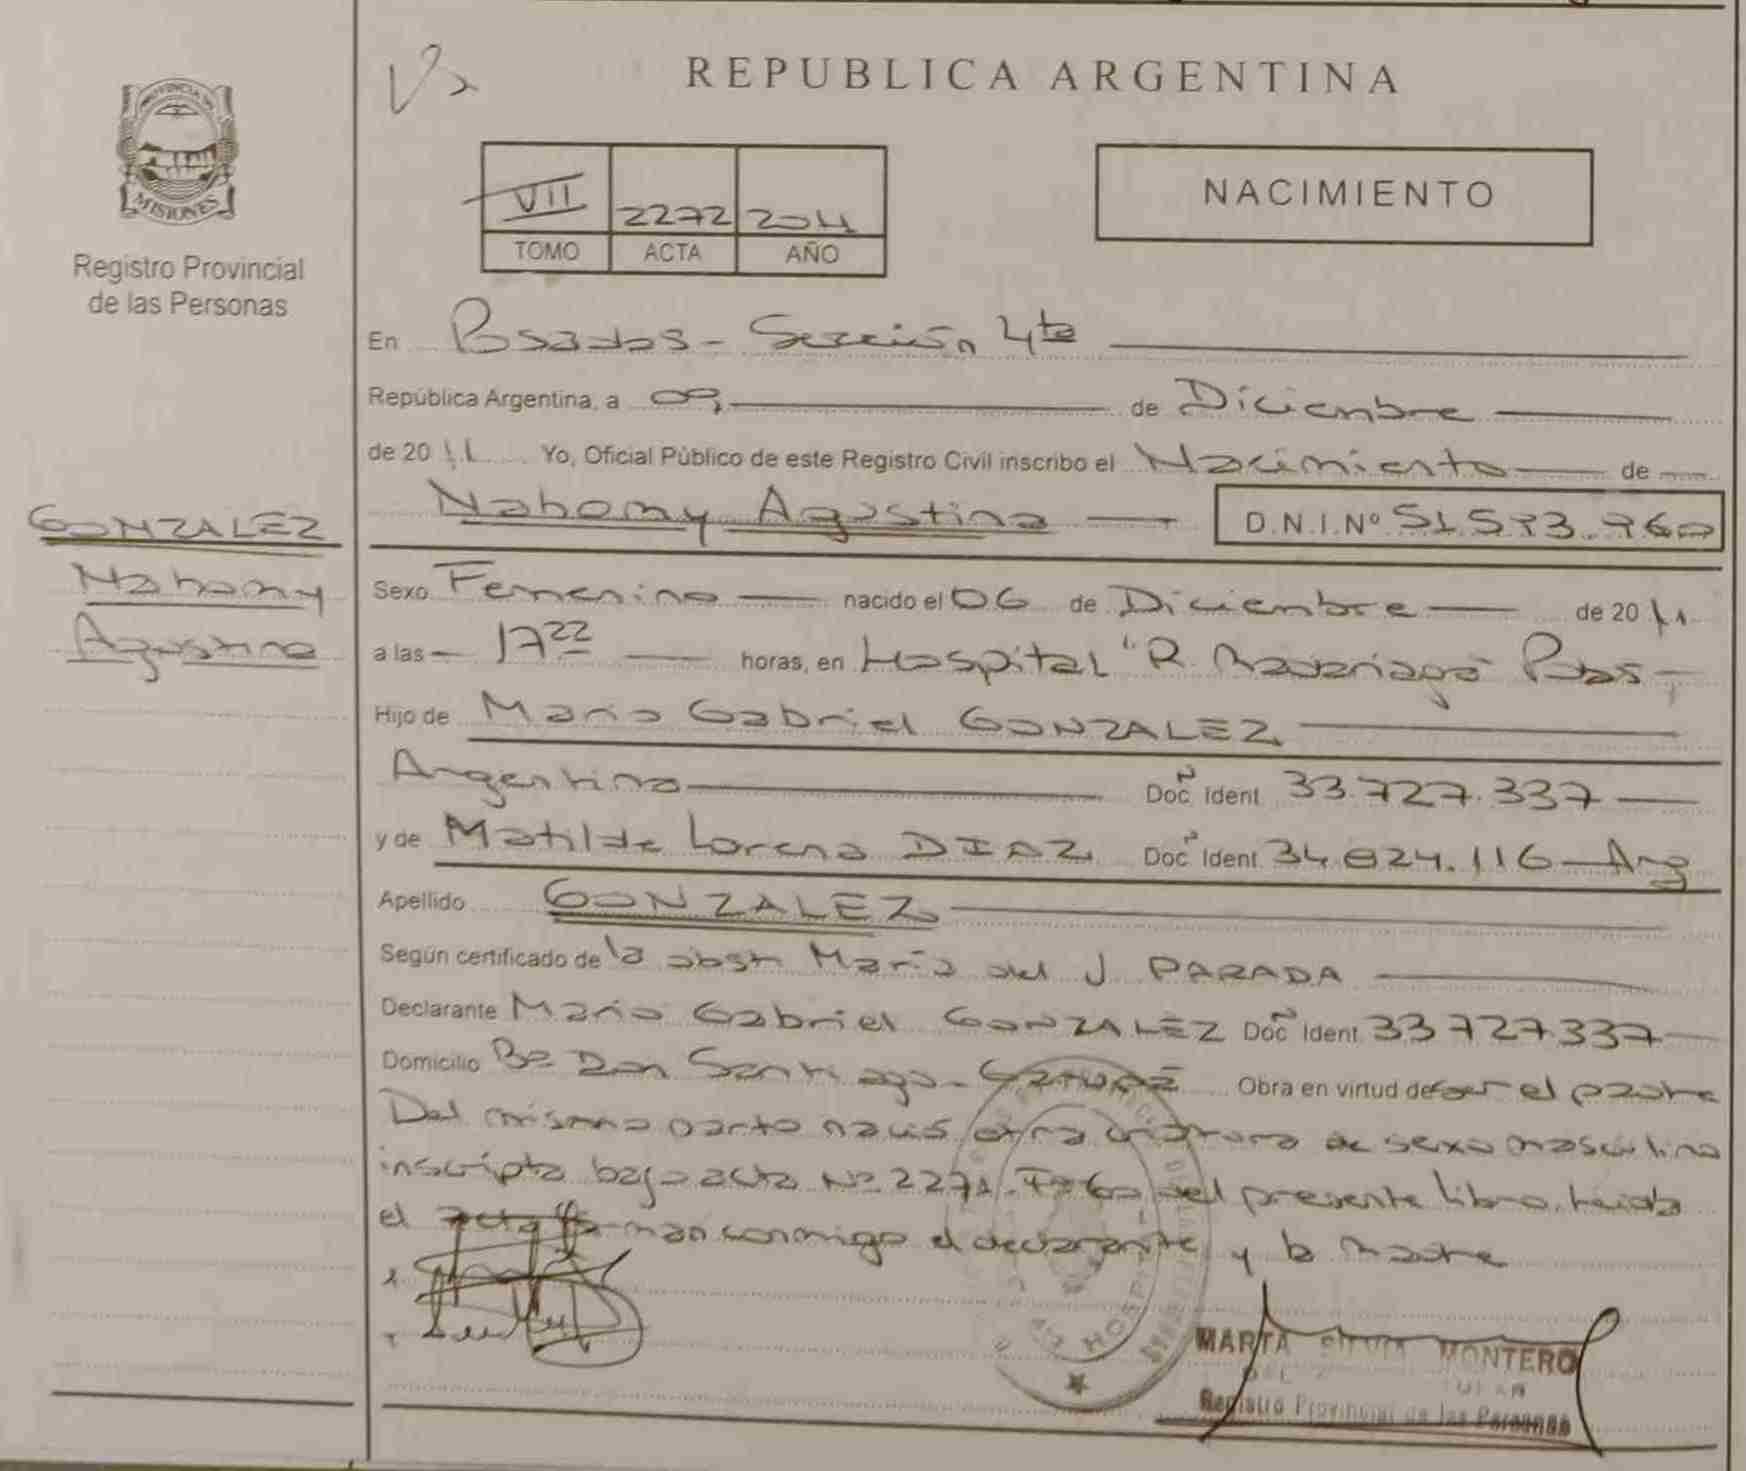 REPUBLICA ARGENTINA
PROVINCIA DE
MISIONES
Registro Provincial
de las Personas
VII 2272 2011
TOMO ACTA AÑO
NACIMIENTO
En Posadas - Sección 4ta
República Argentina, a 09 de Diciembre
de 2011 Yo, Oficial Público de este Registro Civil inscribo el Nacimiento de
Nahomy Agustina D.N.I.Nº
GONZALEZ
Nahomy
Agustina
Sexo Femenino nacido el 06 de Diciembre de 2011
a las 17 22 horas, en Hospital "R. Madariaga" Pdas
Hijo de Mario Gabriel GONZALEZ
Argentino Doc Ident 33.727.337
y de Matilde Lorena DIAZ Doc Ident 34.824.116 - Arg
Apellido GONZALEZ
Según certificado de la obst Maria del J. PARADA
Declarante Mario Gabriel GONZALEZ Doc Ident 33727337
Domicilio Bº Don Santiago - Garupá Obra en virtud de ser el padre
Del mismo parto nació otra criatura de sexo masculino
inscripta bajo acta Nº 2271 Fº 60 del presente libro, leida
el acta firman conmigo el declarante y la madre
HOSPITAL
MARTA SILVIA MONTERO
Registro Provincial de las Personas